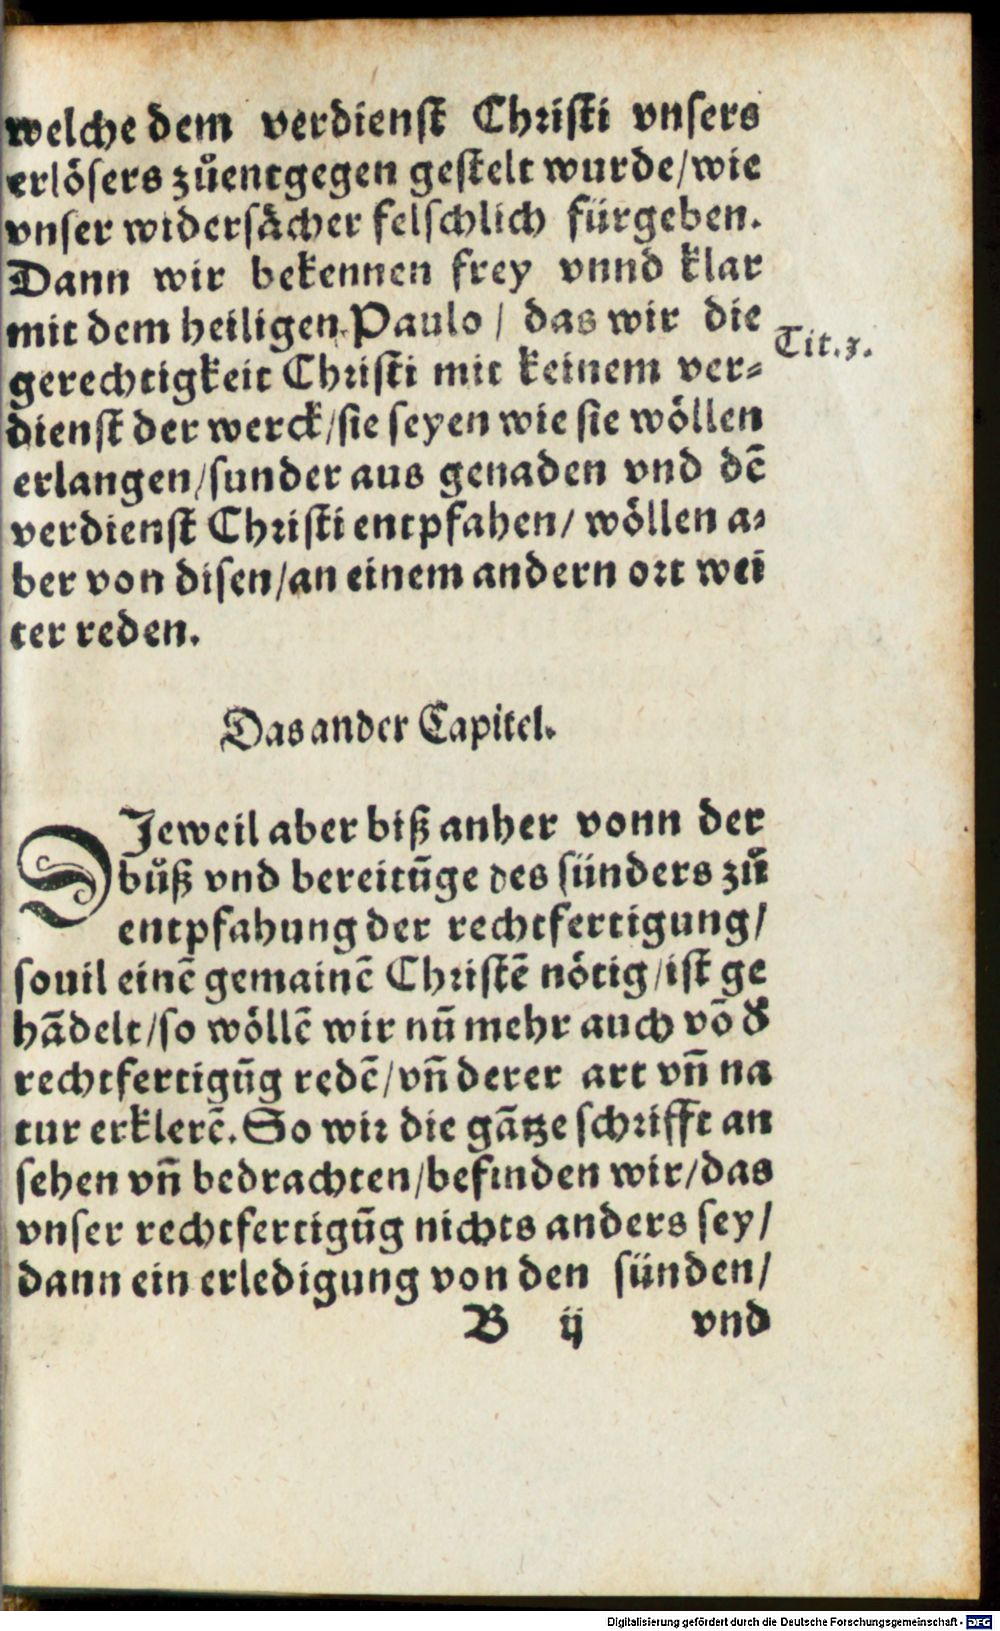 welche dem verdienst Christi vnsers
erlösers zůentgegen gestelt wurde/wie
vnser widersächer felschlich fürgeben.
Dann wir bekennen frey vnnd klar
mit dem heiligen Paulo / das wir die
Tit.3.
gerechtigkeit Christi mit keinem ver=
dienst der werck/sie seyen wie sie wöllen
erlangen/sunder aus genaden vnd dẽ
verdienst Christi entpfahen/ wöllen a=
ber von disen/an einem andern ort wei
ter reden.
Das ander Capitel.
DJeweil aber biß anher vonn der
bůß vnd bereitũge des sünders zů
entpfahung der rechtfertigung/
souil einẽ gemainẽ Christẽ nötig/ist ge
hãdelt/so wöllẽ wir nũ mehr auch võ d̕
rechtfertigũg redẽ/vñ derer art vñ na
tur erklerẽ. So wir die gãtze schrifft an
sehen vñ bedrachten/befinden wir/das
vnser rechtfertigũg nichts anders sey/
dann ein erledigung von den sünden/
B ij vnd
Digitalisierung gefördert durch die Deutsche Forschungsgemeinschaft - DFG